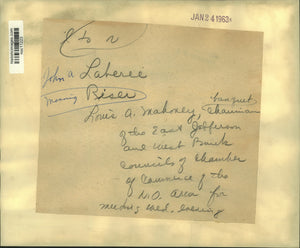 JAN 24 1963
L to R
John A Laberee
Morning Biser
banquet
Louis A. Mahoney, Chairman
of the East Jefferson
and West Bank
Councils of Chamber
of Commerce of the
N.O. Area for
meeting Wed. evening